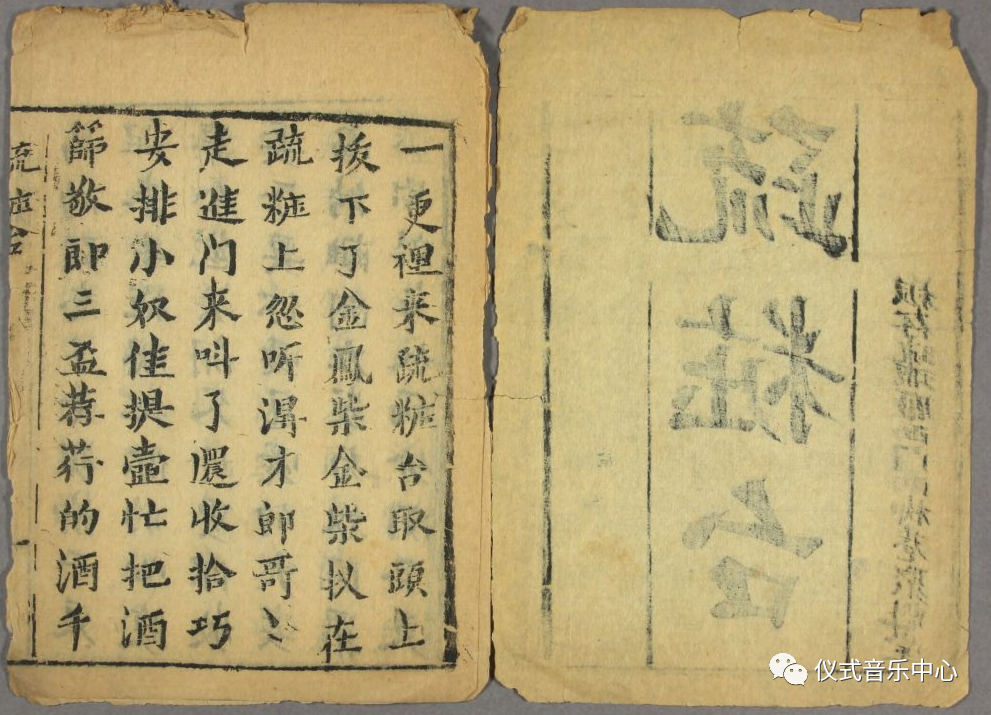 疏粧台
一更裡来疏粧台取頭上
拔下了金鳳柴金柴扒在
疏粧上忽听得才郎哥〻
走進门来呌了還收拾巧
安排小奴佳提壺忙把酒
篩敬郎三盃的酒千
疏粧台
一
仪式音乐中心